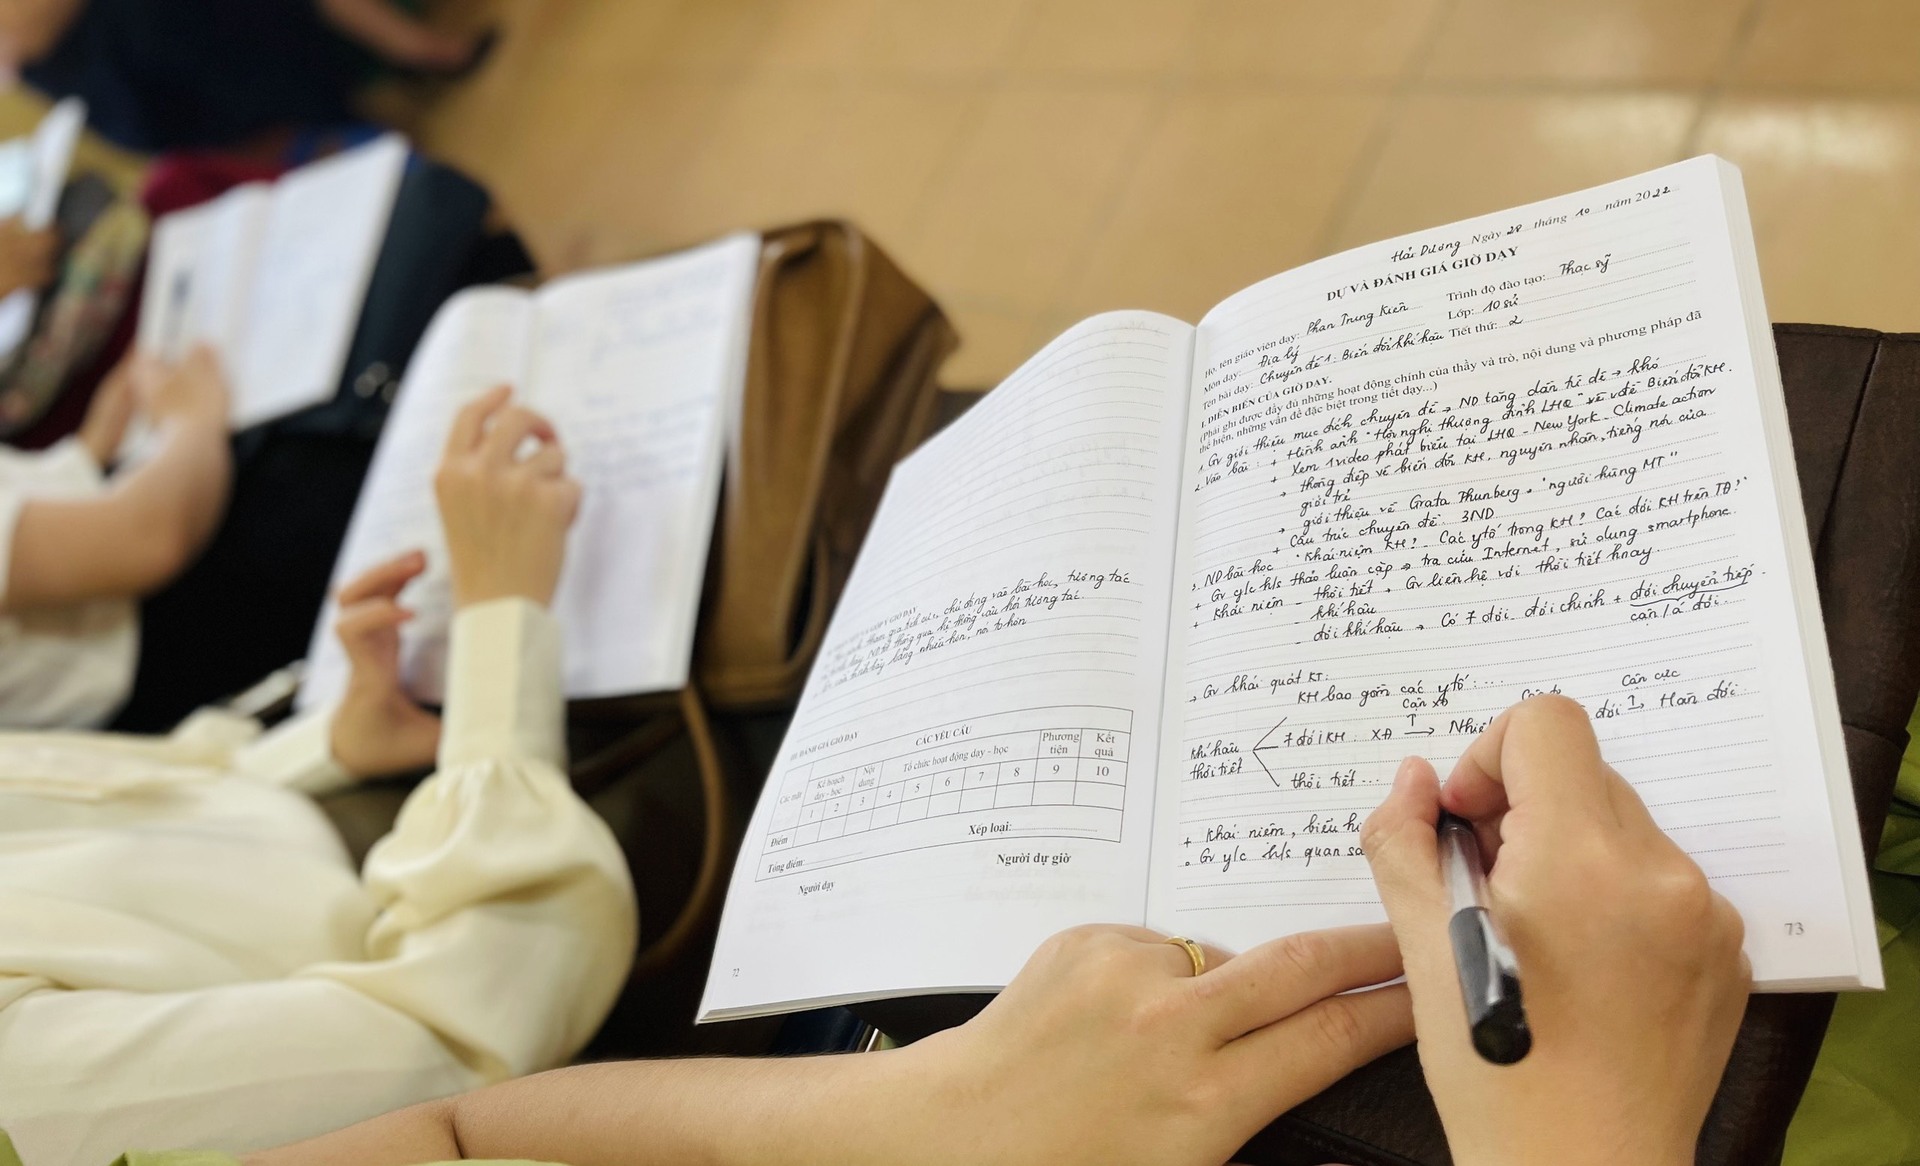 tham gia tích cực, chủ động vào bài học, tương tác
thông qua hệ thống câu hỏi tương tác.
trình bày bằng nhiều hơn, nói to hơn
III. ĐÁNH GIÁ GIỜ DẠY
CÁC YÊU CẦU
Các mặt
Kế hoạch dạy - học
Nội dung
Tổ chức hoạt động dạy - học
Phương tiện
Kết quả
1 2 3 4 5 6 7 8 9 10
Điểm
Tổng điểm:
Xếp loại:
Người dạy
Người dự giờ
72
Hải Dương Ngày 28 tháng 10 năm 2022
DỰ VÀ ĐÁNH GIÁ GIỜ DẠY
Họ, tên giáo viên dạy: Phan Trung Kiên Trình độ đào tạo: Thạc sỹ
Môn dạy: Địa lý Lớp: 10 sử
Tên bài dạy: Chuyên đề 1. Biến đổi khí hậu Tiết thứ: 2
I. DIỄN BIẾN CỦA GIỜ DẠY.
(Phải ghi được đầy đủ những hoạt động chính của thầy và trò, nội dung và phương pháp đã
thể hiện, những vấn đề đặc biệt trong tiết dạy...)
1. Gv giới thiệu mục đích chuyên đề → ND tăng dần từ dễ → khó
2. Vào bài: + Hình ảnh "Hội nghị thượng đỉnh LHQ" về vđề Biến đổi KH.
+ Xem 1 video phát biểu tại LHQ - New York - Climate action
→ thông điệp về biến đổi KH, nguyên nhân, tiếng nói của
giới trẻ
→ giới thiệu về Grata Thunberg - "người hùng MT"
+ Cấu trúc chuyên đề: 3ND
3. ND bài học: "Khái niệm KH? Các ytố trong KH? Các đới KH trên TĐ?"
+ Gv y/c h/s thảo luận cặp → tra cứu Internet, sử dụng smartphone.
+ Khái niệm - thời tiết → Gv liên hệ với thời tiết hnay.
- khí hậu
- đới khí hậu → Có 7 đới. đới chính + đới chuyển tiếp.
cận / á đới.
→ Gv khái quát KT:
KH bao gồm các ytố: ....
Cận xđ Cận cực
khí hậu 7 đới KH: XĐ → đới → Hàn đới.
thời tiết
thời tiết ...
+ Khái niệm, biểu hi
• Gv y/c h/s quan sá
73